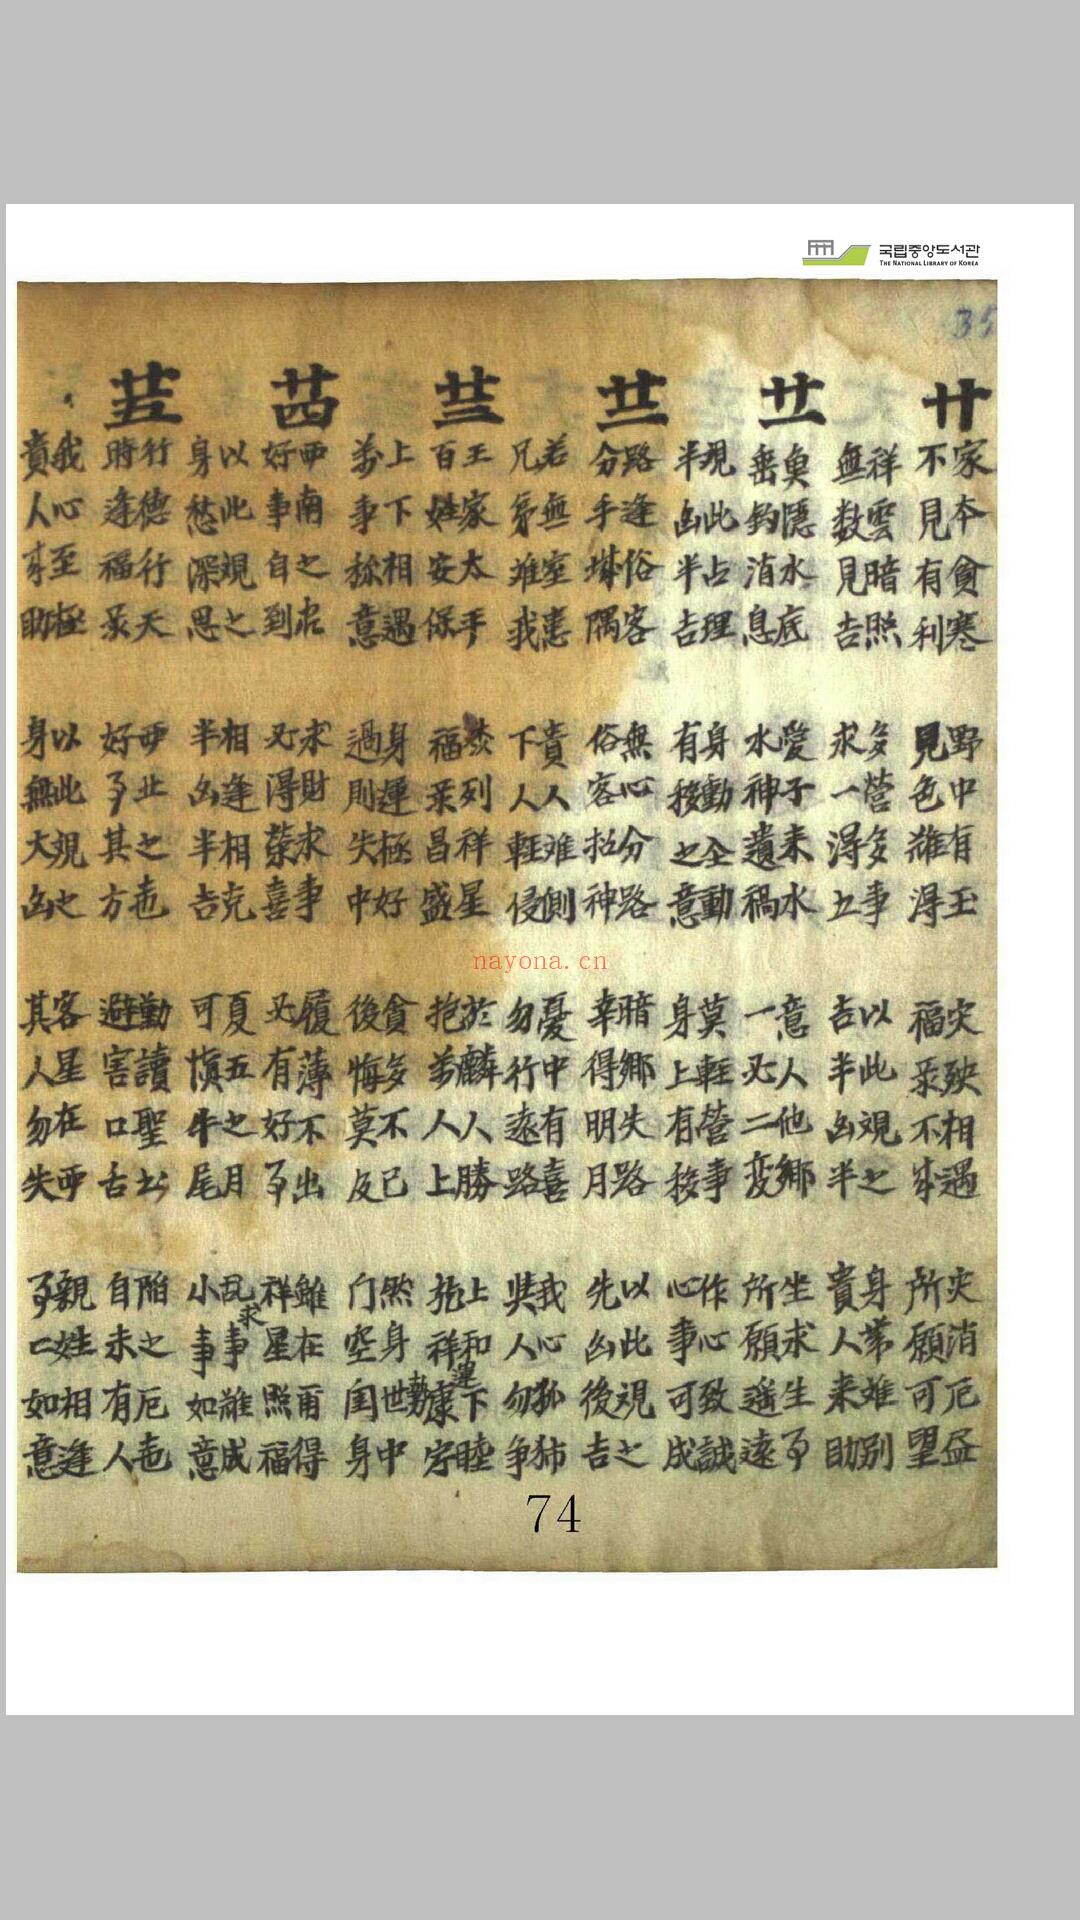 국립중앙도서관
THE NATIONAL LIBRARY OF KOREA
35
廿
家本貧寒 野中有玉 灾殃相遇 灾消厄益
不見有利 見色難得 福彔不来 所願可望
廿一
祥雲暗照 多營多事 以此覌之 身常难別
無數見吉 求一得五 吉半凶半 貴人来助
魚隱水底 愛子来水 意人他鄉 坐求生事
垂釣消息 水神遺禍 一必二变 所願遥遠
現此占理 身動全動 莫輕營事 作心致誠
半凶半吉 有移之意 身上有移 心事可成
廿二
路逢俗客 無心分路 暗鄉失路 以此覌之
分手隅 俗客招神 幸得明月 先凶後吉
若無室患 貴人难側 憂中有喜 我心孤
兄弟难我 下人輕侵 勿行遠路 人勿爭
廿三
王家太平 列祥星 於麟人勝 上和運下睦
百姓安保 福彔昌盛 抱萬人上 祥康
上下相遇 身運極好 貪多不已 然身世中
萬事称意 過則失中 後悔莫及 门空閨身
廿四
西南之 求財求事 履薄不出 雖在得
好事自到 必得榮喜 必有好事 祥星照福
以此覌之 相逢相克 夏五之月 乱求事難成
身愁深思 半凶半吉 可慎牛尾 小事如意
廿五
行德行天 西北之也 動讀聖 陷之厄也
時逢福彔 好事其方 避害口舌 自未有人
我心至極 以此覌之 客星在西 親姓相逢
貴人来助 身無大凶 其人勿失 事亡如意
nayona.cn
74